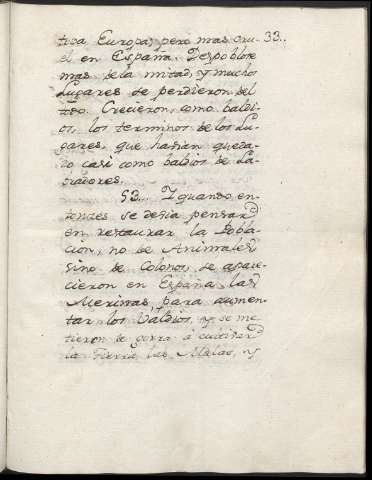 tada Europa, pero mas cru- 33..
el en España. Despoblose
mas de la mitad, y muchos
Lugares se perdieron del
tōo. Crecieron, como baldi-
os, los terminos de los Lu-
gares, que havian queda-
do casi como baldios de La-
bradores.
53... Y quando en-
tonces se devia pensar
en restaurar la Pobla-
cion, no de Animales
sino de Colonos, se apare-
cieron en España las
Merinas, para aumen-
tar los Valdios, y se me
tieron à cultivar
la Tierra las Malas, y